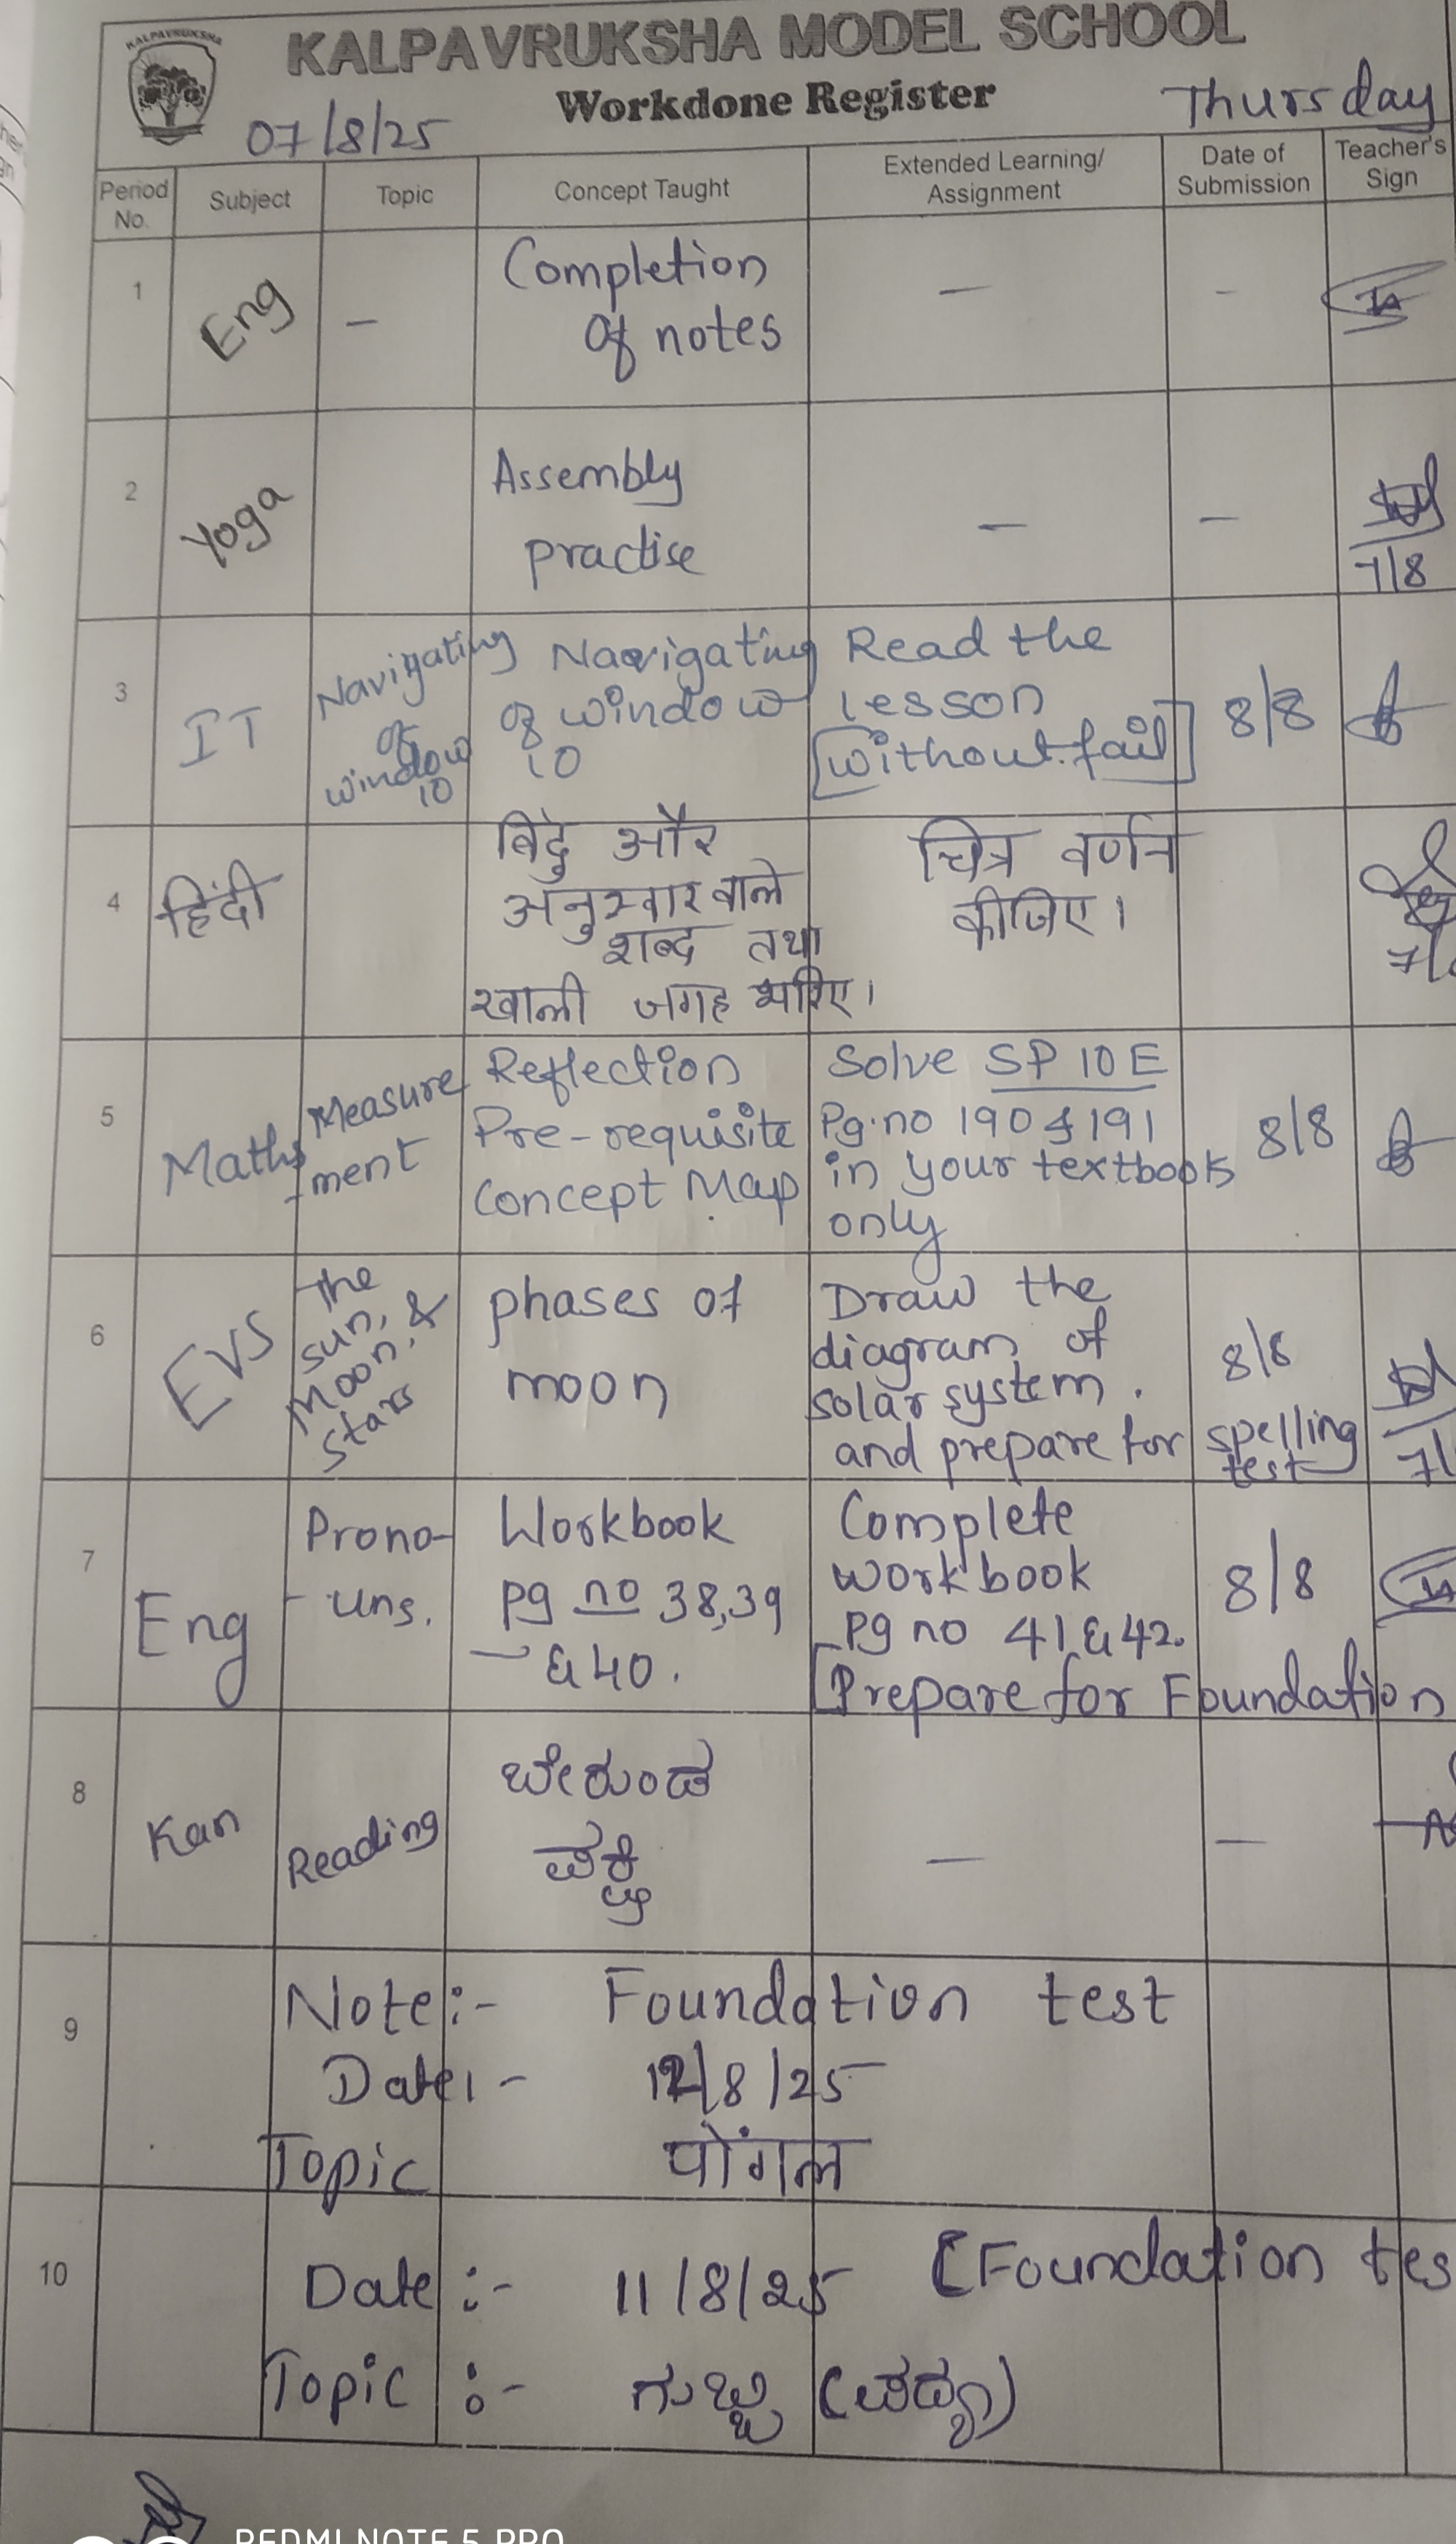 KALPAVRUKSHA
KALPAVRUKSHA MODEL SCHOOL
Workdone Register
07/8/25
Thursday
Period No.
Subject
Topic
Concept Taught
Extended Learning/
Assignment
Date of
Submission
Teacher's
Sign
1
Eng
—
Completion
of notes
—
-
2
Yoga
Assembly
practise
—
—
7/8
3
IT
Navigating
of
window
10
Navigating
of window
10
Read the
lesson
[without fail]
8/8
4
हिंदी
बिंदु और
अनुस्वार वाले
शब्द तथा
खाली जगह भरिए।
चित्र वर्णन
कीजिए।
5
Maths
Measure
-ment
Reflection
Pre-requisite
Concept Map
Solve SP 10 E
Pg.no 190 & 191
in your textbook
only
8/8
6
EVS
The
sun,
Moon, &
Stars
phases of
moon
Draw the
diagram of
solar system.
and prepare for spelling
test
8/8
7
Eng
Prono-
-uns.
Workbook
pg no 38,39
& 40.
Complete
workbook
Pg no 41 & 42.
[Prepare for Foundation
8/8
8
Kan
Reading
ಬೇರುಂಡ
ಪಕ್ಷಿ
—
—
9
Note:- Foundation test
Date:- 12/8/25
Topic पोंगल
10
Date:- 11/8/25 (Foundation tes
Topic:- ಗುಬ್ಬಿ (ಪದ್ಯ)
REDMI NOTE 5 PRO